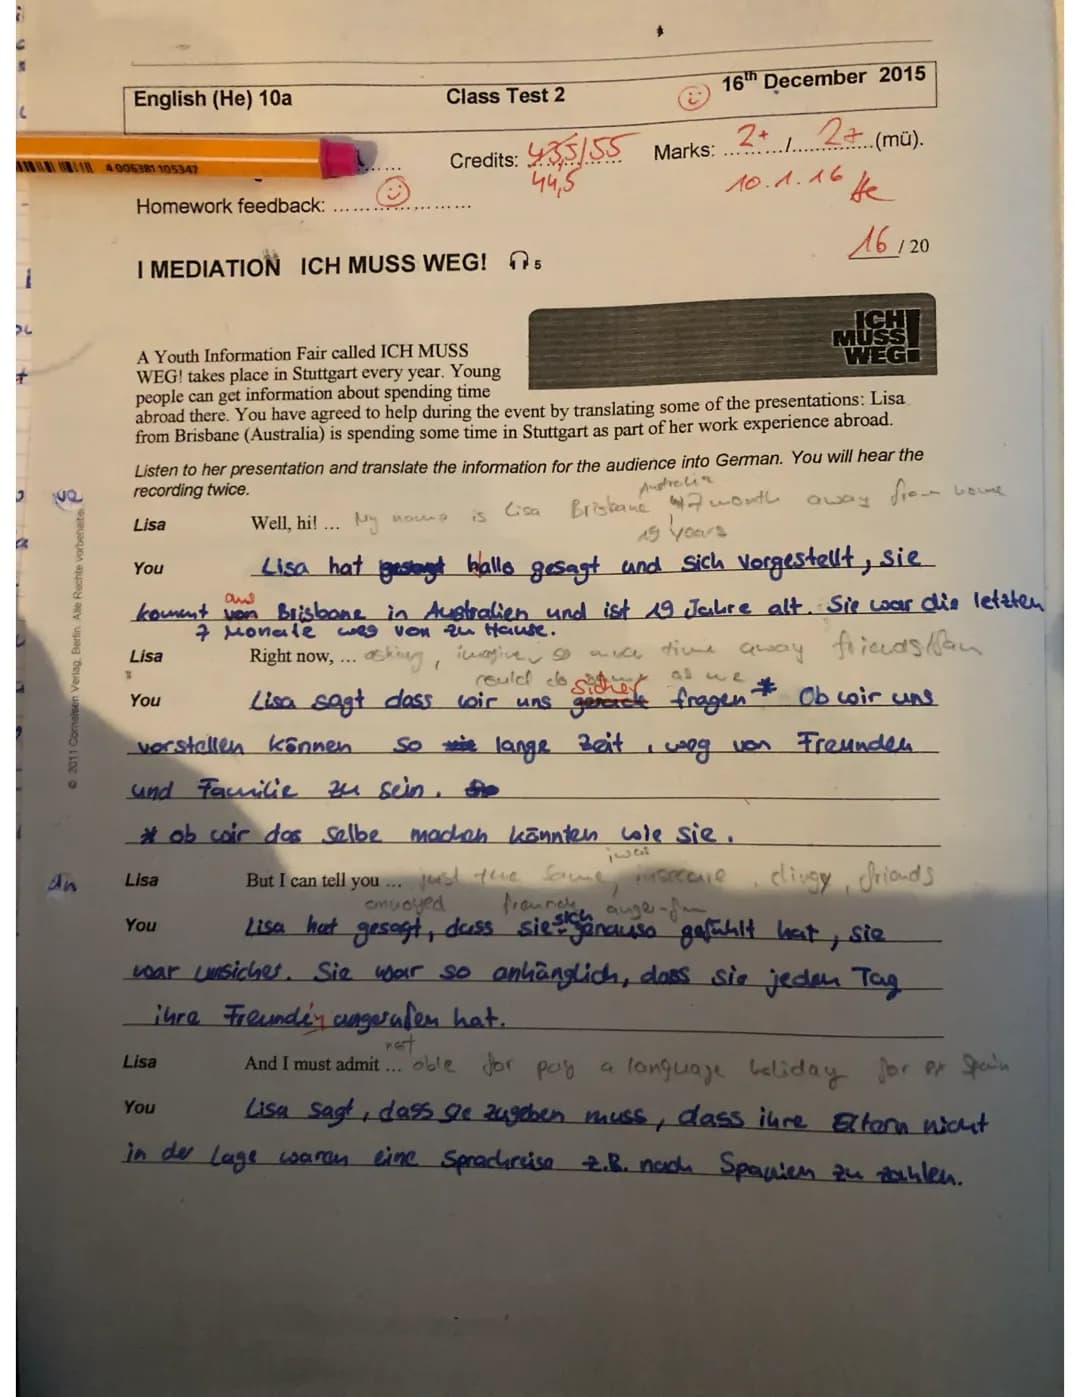 English (He) 10a Class Test 2 16th December 2015
4 005381 105347
Credits: 43,5/55 Marks: 2+ / 2+ (mü).
44,5 10.1.16 He
Homework feedback: ........
16 / 20
I MEDIATION ICH MUSS WEG! 5
ICH MUSS WEG!
A Youth Information Fair called ICH MUSS
WEG! takes place in Stuttgart every year. Young
people can get information about spending time
abroad there. You have agreed to help during the event by translating some of the presentations: Lisa
from Brisbane (Australia) is spending some time in Stuttgart as part of her work experience abroad.
Listen to her presentation and translate the information for the audience into German. You will hear the
recording twice.
Australia
Lisa Well, hi! ... My name is Lisa Brisbane 7 month away from home
19 years
You Lisa hat gesagt Hallo gesagt und sich vorgestellt, sie
aus
kommt von Brisbane in Australien und ist 19 Jahre alt. Sie war die letzten
7 Monate weg von zu Hause.
Lisa Right now, ... asking, imagine so time away friends/fam
could do as me
Sicher
You Lisa sagt dass wir uns gerade fragen * Ob wir uns
vorstellen können so lange Zeit, weg von Freunden
und Familie zu sein.
* ob wir das selbe machen könnten wie sie.
Lisa But I can tell you ... just the same, insecure, clingy, friends
You Lisa hat gesagt, dass sie sich genauso gefühlt hat, sie
war unsicher. Sie war so anhänglich, dass sie jeden Tag
ihre Freundin angerufen hat.
not
Lisa And I must admit ... able for pay a language holiday for Spain
You Lisa sagt, dass sie zugeben muss, dass ihre Eltern nicht
in der Lage waren eine Sprachreise z.B. nach Spanien zu zahlen.
© 2011 Cornelsen Verlag, Berlin. Alle Rechte vorbehalten.